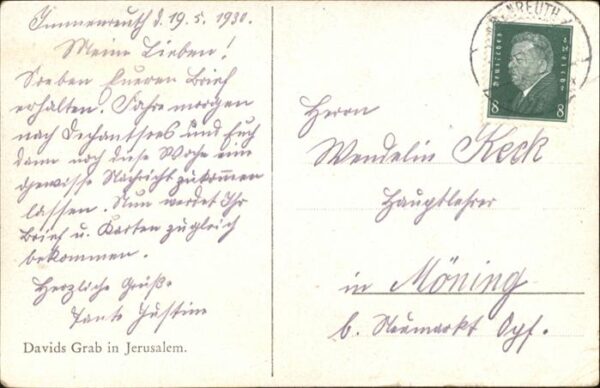 Immenreuth d. 19.5.1930.
Meine Lieben!
Soeben Eueren Brief
erhalten. Fahre morgen
nach Dechantsees und Euch
dann noch diese Woche eine
gewisse Nachricht zukommen
lassen. Nun werdet Ihr
Brief u. Karten zugleich
bekommen.
Herzliche Grüße
Tante Justine
Davids Grab in Jerusalem.
ENREUTH
Deutsches Reich
8 8
Herrn
Wendelin Keck
Hauptlehrer
in Möning
b. Neumarkt Opf.